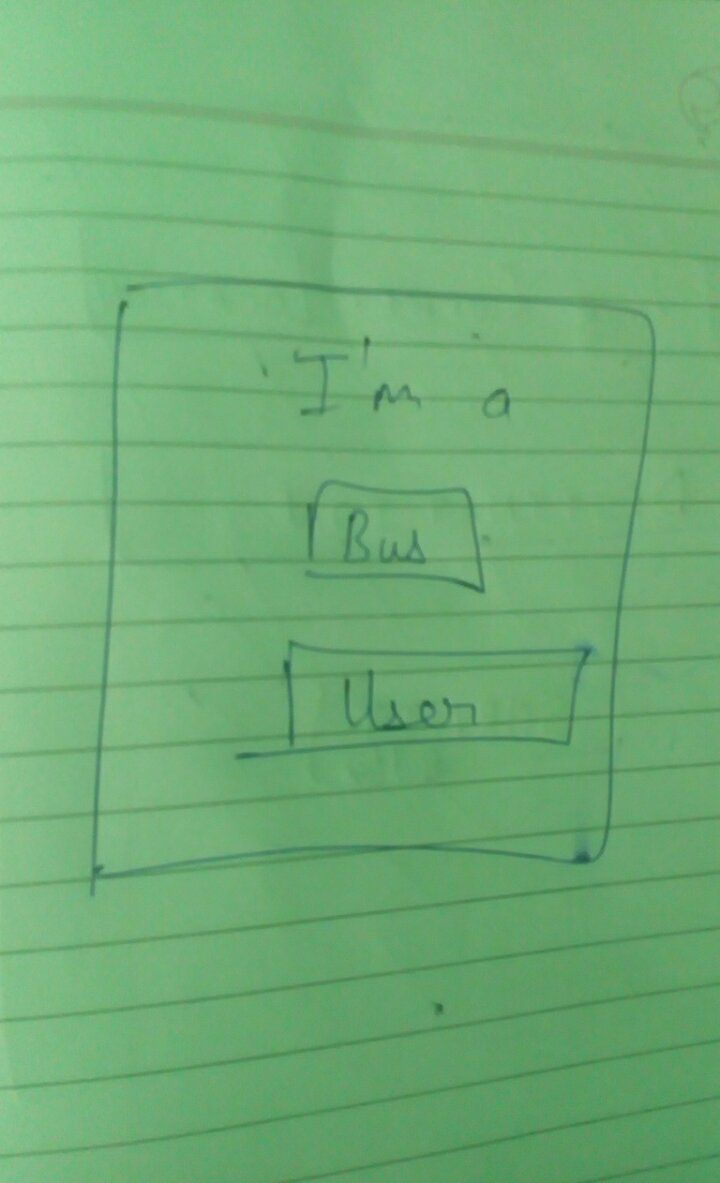 I'm a
Bus
User